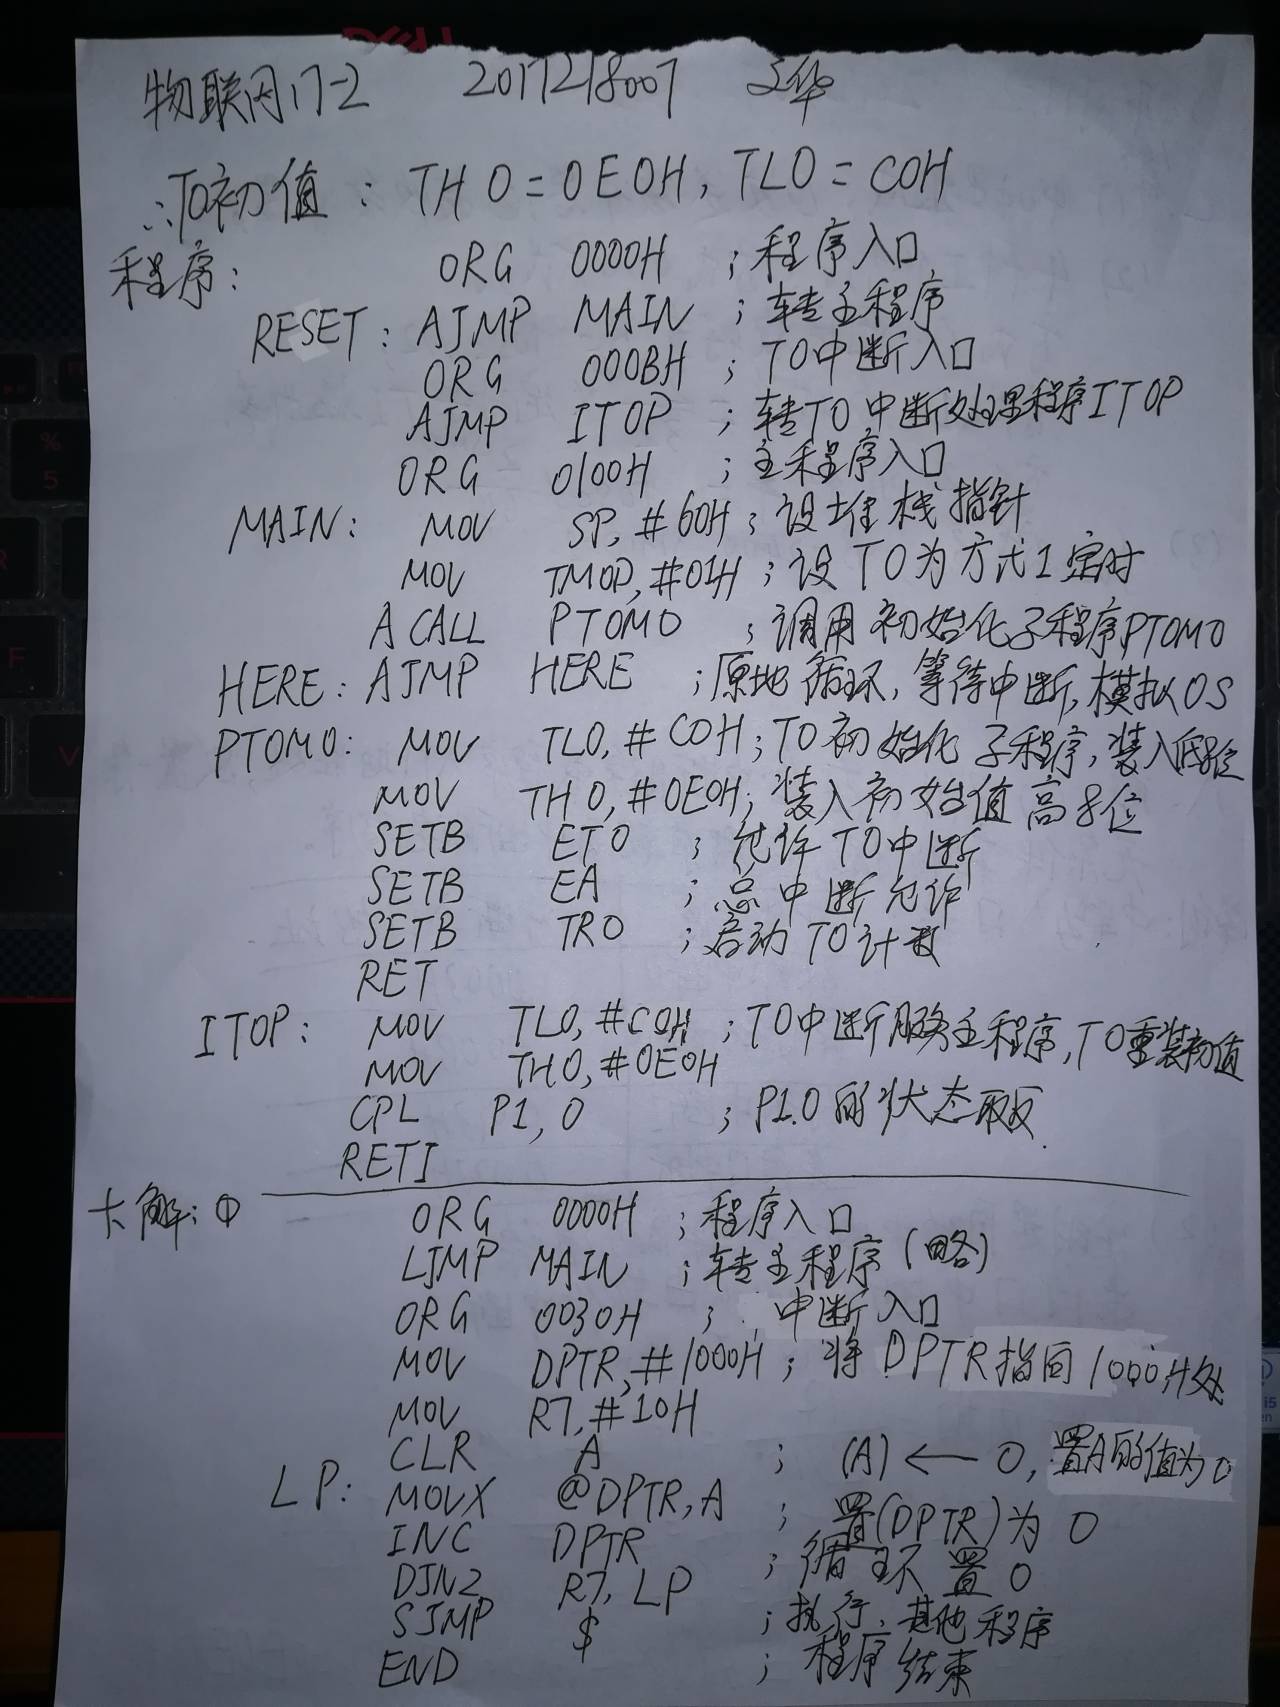 物联网17-2 2017218007 文华
∴T0初值: TH0=0E0H, TL0=C0H
程序: ORG 0000H ;程序入口
RESET: AJMP MAIN ;转主程序
ORG 000BH ;T0中断入口
AJMP IT0P ;转T0中断处理程序IT0P
ORG 0100H ;主程序入口
MAIN: MOV SP,#60H ;设堆栈指针
MOV TMOD,#01H ;设T0为方式1定时
ACALL PT0M0 ;调用初始化子程序PT0M0
HERE: AJMP HERE ;原地循环,等待中断,模拟OS
PT0M0: MOV TL0,#C0H;T0初始化子程序,装入低8位
MOV TH0,#0E0H;装入初始值高8位
SETB ET0 ;允许T0中断
SETB EA ;总中断允许
SETB TR0 ;启动T0计数
RET
IT0P: MOV TL0,#C0H ;T0中断服务主程序,T0重装初值
MOV TH0,#0E0H
CPL P1,0 ;P1.0的状态取反.
RETI
大解:① ORG 0000H ;程序入口
LJMP MAIN ;转主程序(略)
ORG 0030H ;中断入口
MOV DPTR,#1000H ;将DPTR指向1000H处
MOV R7,#10H
CLR A ; (A)←0,置A的值为0
LP: MOVX @DPTR,A ;置(DPTR)为0
INC DPTR
DJNZ R7,LP ;循环置0
SJMP $ ;执行其他程序
END ;程序结束